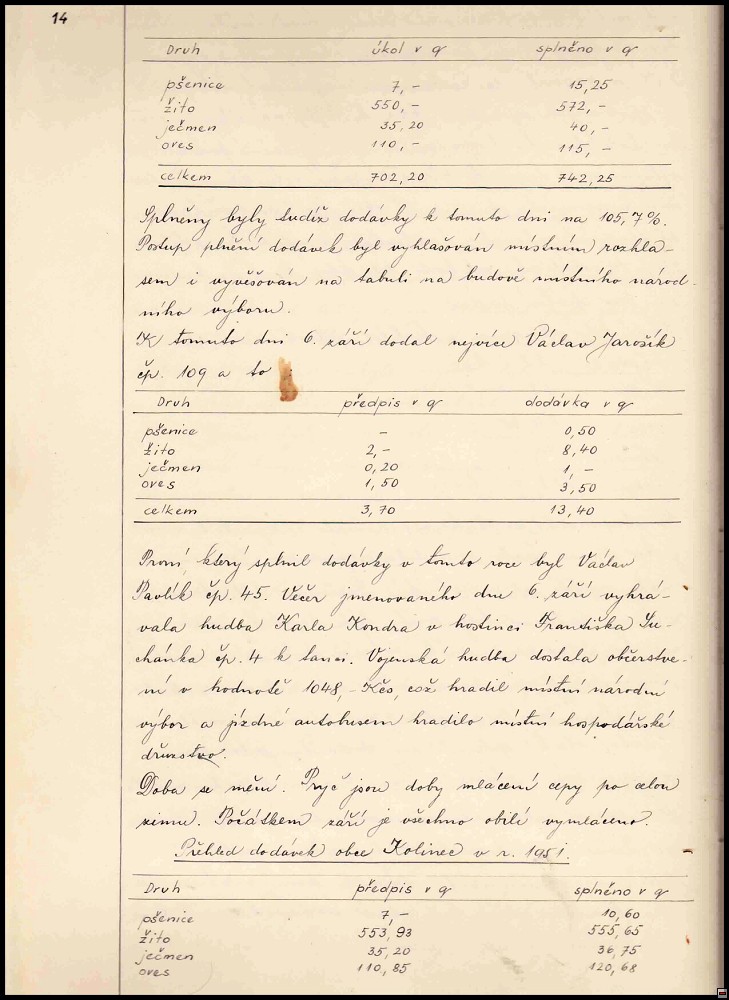 14
Druh úkol v q splněno v q
pšenice 7,- 15,25
žito 550,- 572,-
ječmen 35,20 40,-
oves 110,- 115,-
celkem 702,20 742,25
Splněny byly tudíž dodávky k tomuto dni na 105,7%.
Postup plnění dodávek byl vyhlašován místním rozhla-
sem i vyvěšován na tabuli na budově místního národ-
ního výboru.
K tomuto dni 6. září dodal nejvíce Václav Jarošík
čp. 109 a to :
Druh předpis v q dodávka v q
pšenice - 0,50
žito 2,- 8,40
ječmen 0,20 1,-
oves 1,50 3,50
celkem 3,70 13,40
První, který splnil dodávky v tomto roce byl Václav
Pavlík čp. 45. Večer jmenovaného dne 6. září vyhrá-
vala hudba Karla Kondra v hostinci Františka Su-
chánka čp. 4 k tanci. Vojenská hudba dostala občerstve-
ní v hodnotě 1048,- Kčs, což hradil místní národní
výbor a jízdné autobusem hradilo místní hospodářské
družstvo.
Doba se mění. Pryč jsou doby mlácení cepy po celou
zimu. Počátkem září je všechno obilí vymláceno.
Přehled dodávek obce Kolinec v r. 1951.
Druh předpis v q splněno v q
pšenice 7,- 10,60
žito 553,93 555,65
ječmen 35,20 36,75
oves 110,85 120,68